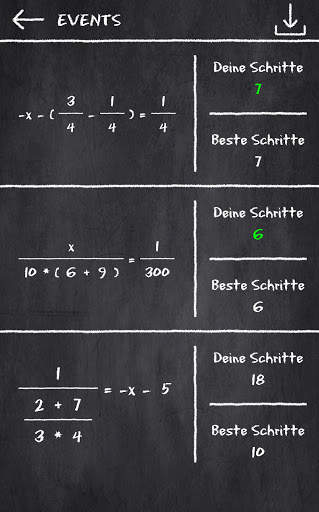 EVENTS
-x - ( 3/4 - 1/4 ) = 1/4
Deine Schritte
7
Beste Schritte
7
x / 10 * ( 6 + 9 ) = 1/300
Deine Schritte
6
Beste Schritte
6
1 / ( 2 + 7 / 3 * 4 ) = -x - 5
Deine Schritte
18
Beste Schritte
10